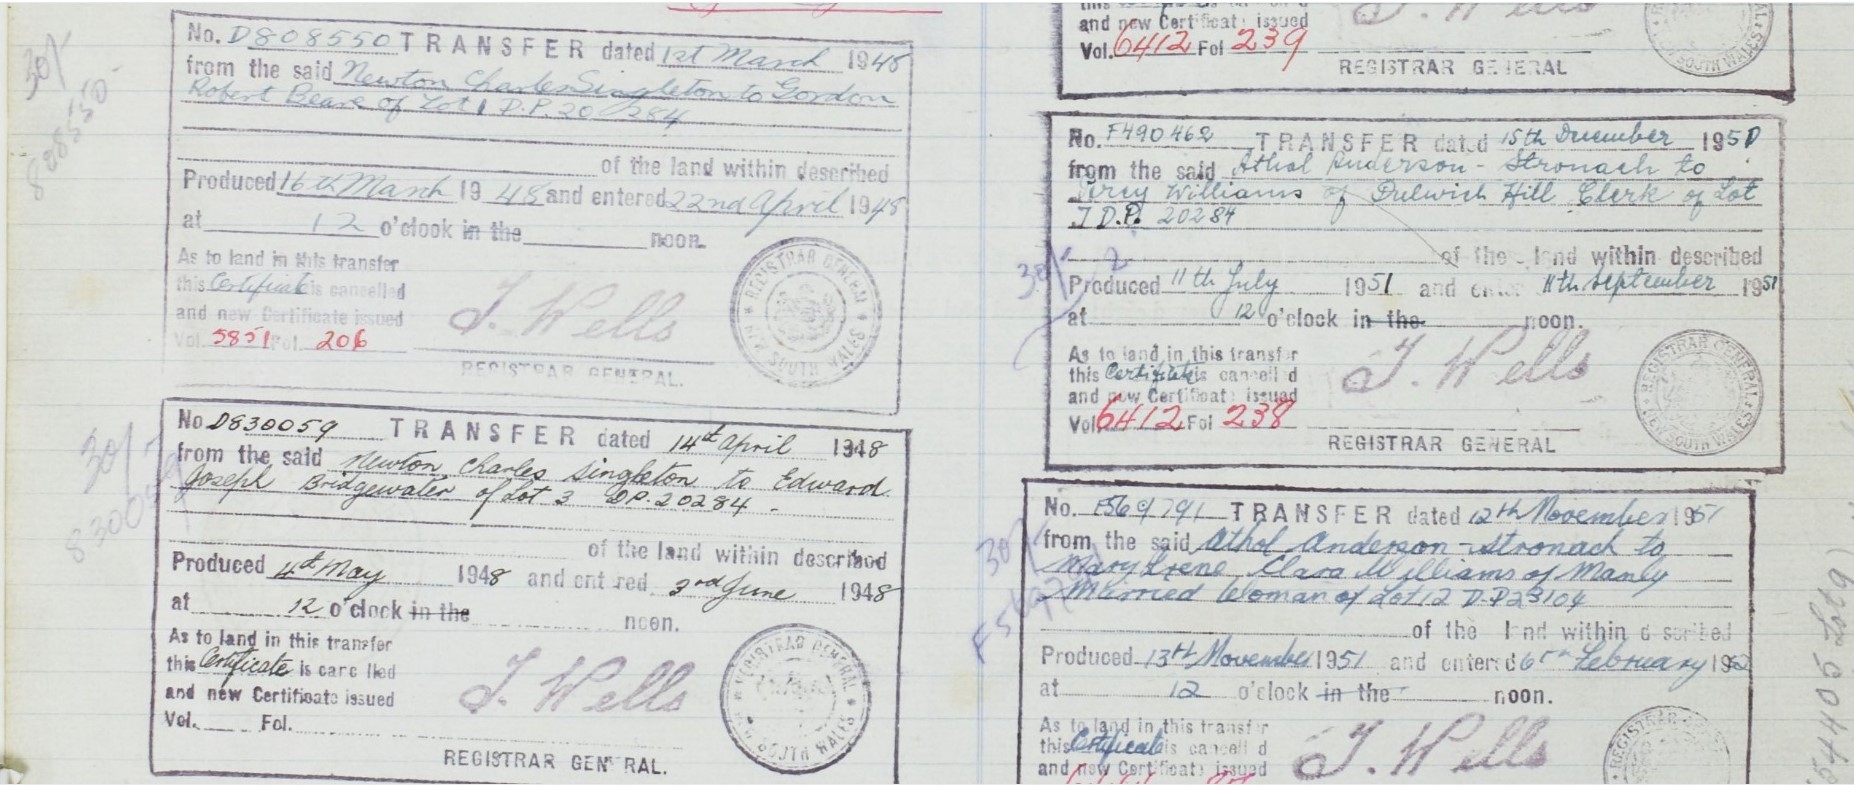 30/-
808550
No. D808550 TRANSFER dated 1st March 1948
from the said Newton Charles Singleton to Gordon
Robert Beare of Lot 1 D.P. 20284
of the land within described
Produced 16th March 1948 and entered 22nd April 1948
at 12 o'clock in the noon.
As to land in this transfer
this Certificate is cancelled
and new Certificate issued
Vol. 5851 Fol. 206
J. Wells
REGISTRAR GENERAL.
REGISTRAR GENERAL NEW SOUTH WALES
30/-
830059
No D830059 TRANSFER dated 14th April 1948
from the said Newton Charles Singleton to Edward
Joseph Bridgewater of Lot 3 D.P. 20284 -
of the land within described
Produced 4th May 1948 and entred 3rd June 1948
at 12 o'clock in the noon.
As to land in this transfer
this Certificate is cancelled
and new Certificate issued
Vol. Fol.
J. Wells
REGISTRAR GENERAL.
REGISTRAR GENERAL NEW SOUTH WALES
and new Certificate issued
Vol. 6412 Fol 239
J. Wells
REGISTRAR GENERAL
SOUTH WALES
No. F490462 TRANSFER dated 15th December 1950
from the said Athol Anderson-Stronach to
Percy Williams of Dulwich Hill Clerk of Lot
7 D.P. 20284
of the land within described
30/- 2
Produced 11th July 1951 and enter 11th September 1951
at 12 o'clock in the noon.
As to land in this transfer
this Certificate is cancelled
and new Certificate issued
Vol. 6412 Fol 238
J. Wells
REGISTRAR GENERAL
REGISTRAR GENERAL NEW SOUTH WALES
30/-
F569791
No. F569791 TRANSFER dated 12th November 1951
from the said Athol Anderson-Stronach to
Mary Irene Clara Williams of Manly
Married Woman of Lot 12 D.P 23104
of the land within described
Produced 13th November 1951 and entered 6th February 1952
at 12 o'clock in the noon.
As to land in this transfer
this Certificate is cancelled
and new Certificate issued
J. Wells
REGISTRAR